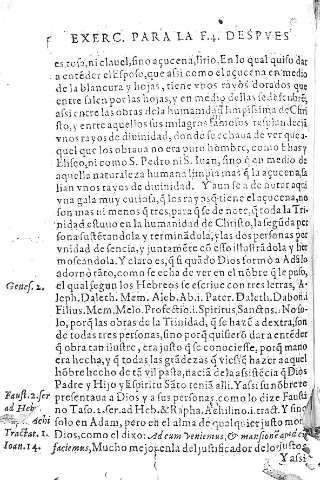 EXERC. PARA LA F.4. DESPVES
es rosa, ni clauel, sino açucena, lirio. En lo qual quiso dar
a entẽder el Esposo, que assi como el açucena en medio
de la blancura y hojas, tiene vnos rayos dorados que
entre salen por las hojas, y en medio dellas se descubrẽ,
assi entre las obras de la humanidad limpissima de Chri
sto, y entre aquellos sus milagros famosos resplandeciã
vnos rayos de diuinidad, donde se echaua de ver que a-
quel que los obraua no era puro hombre, como Elias y
Eliseo, ni como S. Pedro ni S. Iuan, sino q̃ en medio de
aquella naturaleza humana limpia mas q̃ la açucena, sa
lian vnos rayos de diuinidad. Y aun se a de notar aqui
vna gala muy curiosa, q̃ los rayos q̃ tiene el açucena, no
son mas ni menos q̃ tres, para q̃ se de note, q̃ toda la Tri-
nidad estuuo en la humanidad de Christo, la segũda per
sona sustẽtandola y terminãdola, y las dos personas por
vnidad de sencia, y juntamẽte cõ esso illustrãdola y her
moseandola. Y claro es, q̃ si quãdo Dios formò a Adã lo
adornò tãto, como se echa de ver en el nõbre q̃ le puso,
Genes. 2. el qual segun los Hebreos se escriue con tres letras, A-
leph. Daleth. Mem. Aleb. Ab. i. Pater. Daleth. Dabon.
Filius. Mem. Melo. Profectio. i. Spiritus Sanctus. i. No so-
lo, porq̃ las obras de la Trinidad, q̃ se hazẽ a dextra, son
de todas tres personas, sino porq̃ quisierõ dar a entẽder
q̃ obra tan ilustre, era justo q̃ se conociesse, porq̃ mano
era hecha, y q̃ todas las grãdezas q̃ viessẽ hazer a aquel
hõbre hecho de tã vil pasta, nacia de la assistẽcia q̃ Dios
Padre y Hijo y Espiritu Sãto tenia alli. Y assi su nõbre re
Faust. 2. ser presentaua a Dios y a sus personas, como lo dize Faust
ad Heb. no Taso. 2. ser. ad Heb. & Rapha. Achilino. i. tract. Y sino
chi solo en Adam, pero en el alma de qualquier justo mora
Tractat. 1. Dios, como el dixo: Ad eum veniemus, & mansionẽ apud eũ
Ioan. 14. faciemus, Mucho mejor en la del justificador de los justos
Y assi